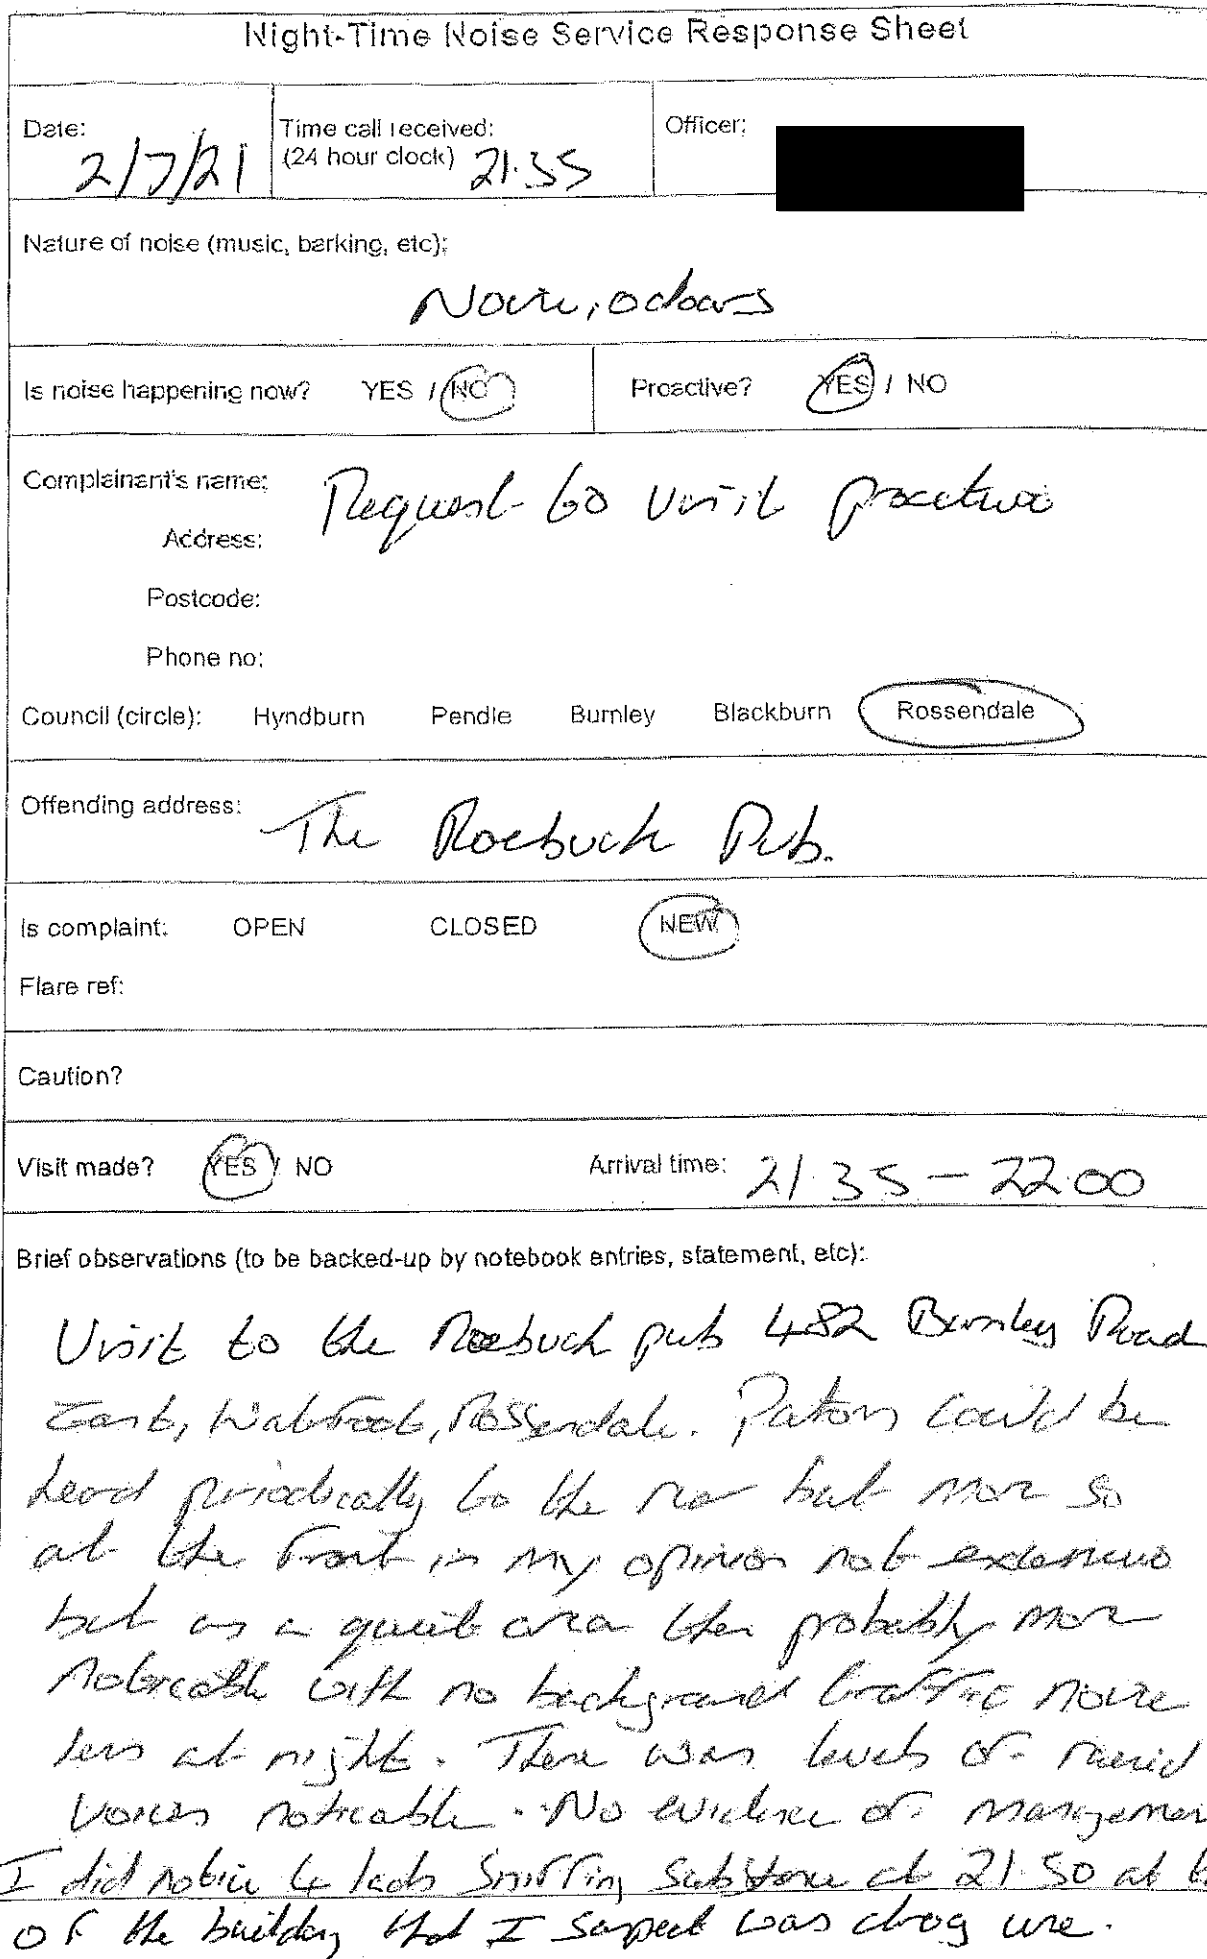 Night-Time Noise Service Response Sheet
Date: 2/7/21
Time call received:
(24 hour clock) 21.35
Officer:
Nature of noise (music, barking, etc):
Noise, odours
Is noise happening now? YES / NO
Proactive? YES / NO
Complainant's name: Request to visit proactive
Address:
Postcode:
Phone no:
Council (circle): Hyndburn Pendle Burnley Blackburn Rossendale
Offending address: The Roebuck Pub.
Is complaint: OPEN CLOSED NEW
Flare ref:
Caution?
Visit made? YES / NO
Arrival time: 21.35 - 22.00
Brief observations (to be backed-up by notebook entries, statement, etc):
Visit to the Roebuck pub 482 Burnley Road
East, Rossendale. Patrons could be
heard periodically to the rear but more so
at the front in my opinion not
but as a quiet area then probably more
noticeable with no background traffic noise
less at night. There was levels of raised
voices noticable. No evidence of
I did notice 4 lads sniffing substance at 21.50 at
of the building that I suspect was drug use.